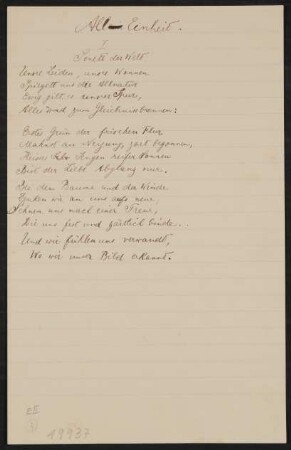 All-Einheit.
I.
Sonette der Welt
Unsre Leiden, unsre Wonnen
Spiegelt uns die Allnatur
Ewig gilt es unsrer Spur,
Alles ward zum Gleichnisbronnen:
Erstes Grün der frischen Flur
Mahnt an Neigung, zart begonnen,
Heisses Sonnen
Sind der Liebe Abglanz nur,
Bei dem Baume und der Winde
Denken wir an uns aufs neue,
Sehnen uns nach einer Treue,
Die uns fest und zärtlich binde...
Und wir fühlen uns verwandt,
Wo wir unser Bild erkannt.
19937